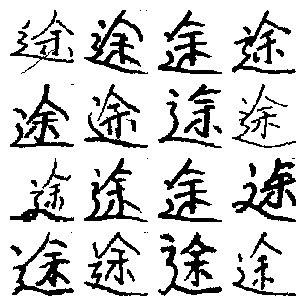 途途途途
途途途途
途途途途
途途途途